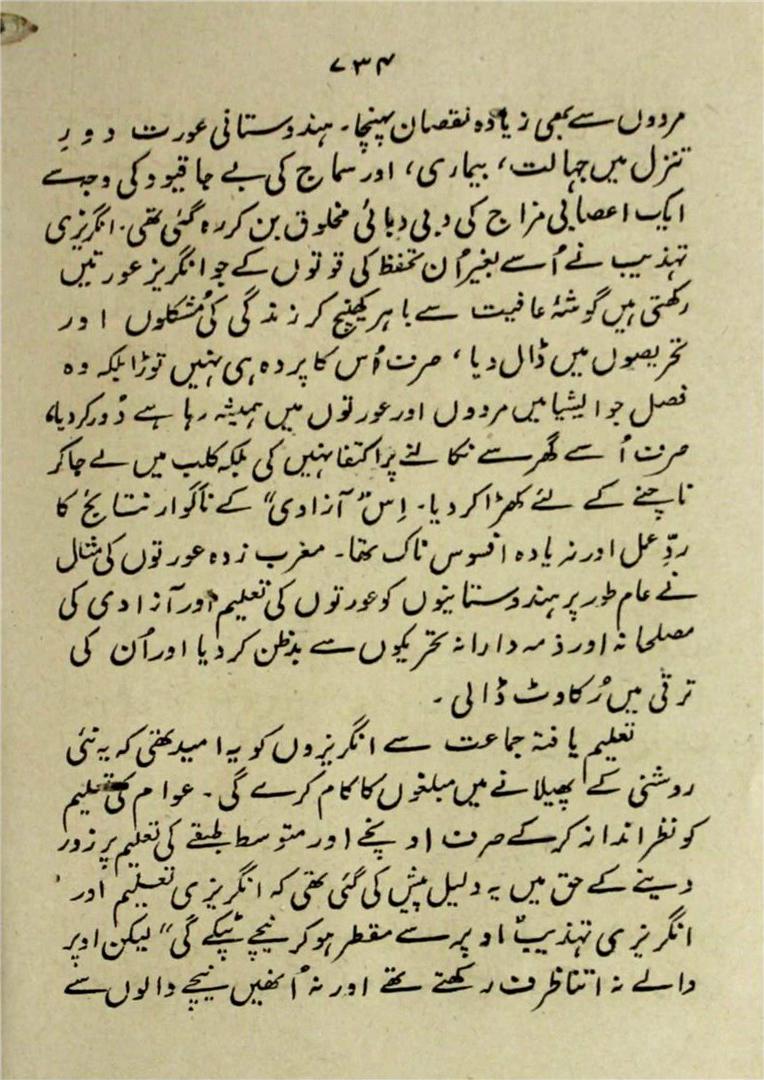 ۷۳۴
مردوں سے بھی زیادہ نقصان پہنچا۔ ہندوستانی عورت دورِ
تنزل میں جہالت، بیماری، اور سماج کی بے جا قیود کی وجہ سے
ایک اعصابی مزاج کی دبی دبائی مخلوق بن کر رہ گئی تھی۔ انگریزی
تہذیب نے اُسے بغیر اُن تحفظ کی قوتوں کے جو انگریز عورتیں
رکھتی ہیں گوشۂ عافیت سے باہر کھینچ کر زندگی کی مُشکلوں اور
تحریصوں میں ڈال دیا، صرف اُس کا پردہ ہی نہیں توڑا بلکہ وہ
فصل جو ایشیا میں مردوں اور عورتوں میں ہمیشہ رہا ہے دُور کردیا،
صرف اُسے گھر سے نکالنے پر اکتفا نہیں کی بلکہ کلب میں لے جاکر
ناچنے کے لئے کھڑا کردیا۔ اِس "آزادی" کے ناگوار نتایج کا
ردِّ عمل اور زیادہ افسوس ناک تھا۔ مغرب زدہ عورتوں کی مثال
نے عام طور پر ہندوستانیوں کو عورتوں کی تعلیم اور آزادی کی
مصلحانہ اور ذمہ دارانہ تحریکوں سے بدظن کردیا اور اُن کی
ترقی میں رُکاوٹ ڈالی۔
تعلیم یافتہ جماعت سے انگریزوں کو یہ امید تھی کہ یہ نئی
روشنی کے پھیلانے میں مبلغوں کا کام کرے گی۔ عوام کی تعلیم
کو نظر انداز کرکے صرف اونچے اور متوسط طبقے کی تعلیم پر زور
دینے کے حق میں یہ دلیل پیش کی گئی تھی کہ انگریزی تعلیم اور
انگریزی تہذیب "اوپر سے مقطر ہوکر نیچے ٹپکے گی" لیکن اوپر
والے نہ اتنا ظرف رکھتے تھے اور نہ اُنھیں نیچے والوں سے